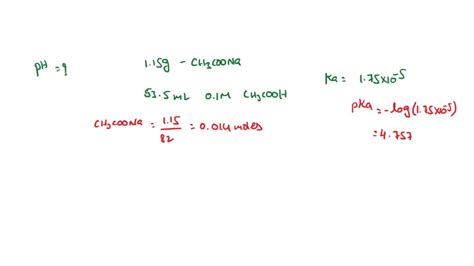 pH = ?
1.15g - CH3COONa
53.5 mL 0.1M CH3COOH
CH3COONa = 1.15/82 = 0.014 moles
Ka = 1.75×10-5
pKa = -log(1.75×10-5)
= 4.757